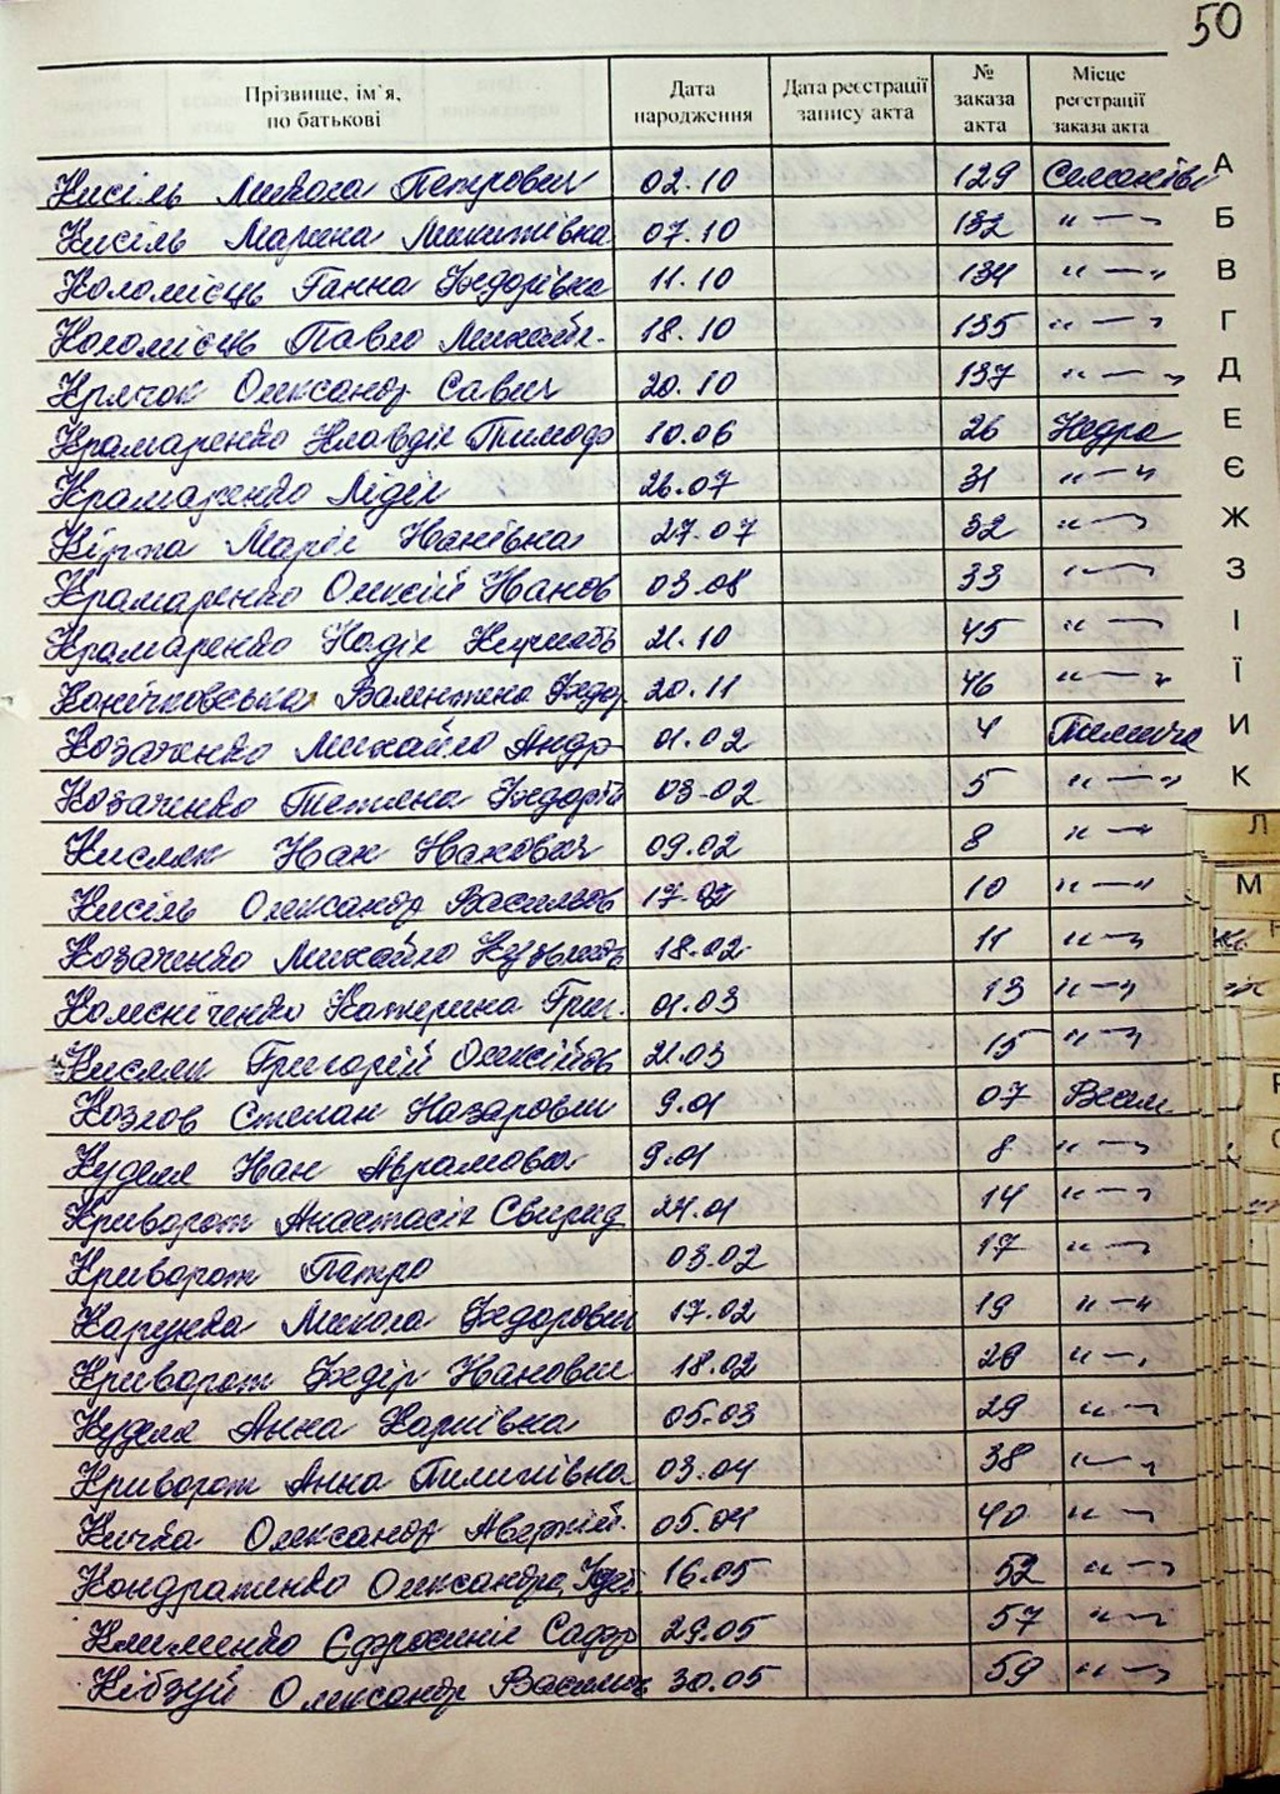 50
Прізвище, ім`я, по батькові Дата народження Дата реєстрації запису акта № заказа акта Місце реєстрації заказа акта
Кисіль Микола Петрович 02.10 129 Семенівк А
Кисіль Марина Микитівна 07.10 132 "—" Б
Коломієць Ганна Федорівна 11.10 134 "—" В
Коломієць Павло Михайл. 18.10 135 "—" Г
Крячок Олександр Савич 20.10 137 "—" Д
Крамаренко Клавдія Тимофо 10.06 26 Недра Е
Крамаренко Лідія 26.07 31 "—" Є
Кірта Марія Іванівна 27.07 32 "—" Ж
Крамаренко Олексій Іванов 03.08 33 "—" З
Крамаренко Надія 21.10 45 "—" І
Валентина Федор 20.11 46 "—" Ї
Козаченко Михайло Андр 01.02 4 И
Козаченко Тетяна Федорів 03.02 5 "—" К
Кисляк Іван Іванович 09.02 8 "—" Л
Кисіль Олександр Васильов 17.02 10 "—" М
Козаченко Михайло Кузьмов 18.02 11 "—"
Колесніченко Катерина Григ. 01.03 13 "—"
Кисляк Григорій Олексійов 21.03 15 "—"
Козлов Степан Назарович 9.01 07
Куделя Іван Аврамович 9.01 8 "—"
Криворот Анастасія Свирид 24.01 14 "—"
Криворот Петро 03.02 17 "—"
Микола Федорович 17.02 19 "—"
Криворот Федір Іванович 18.02 20 "—"
Куделя Анна Карпівна 05.03 29 "—"
Криворот Анна Пилипівна 03.04 38 "—"
Кичка Олександр Аверкій. 05.04 40 "—"
Кондратенко Олександра 16.05 52 "—"
Клименко Єфросинія 29.05 57 "—"
Кібзуй Олександр Васильов 30.05 59 "—"